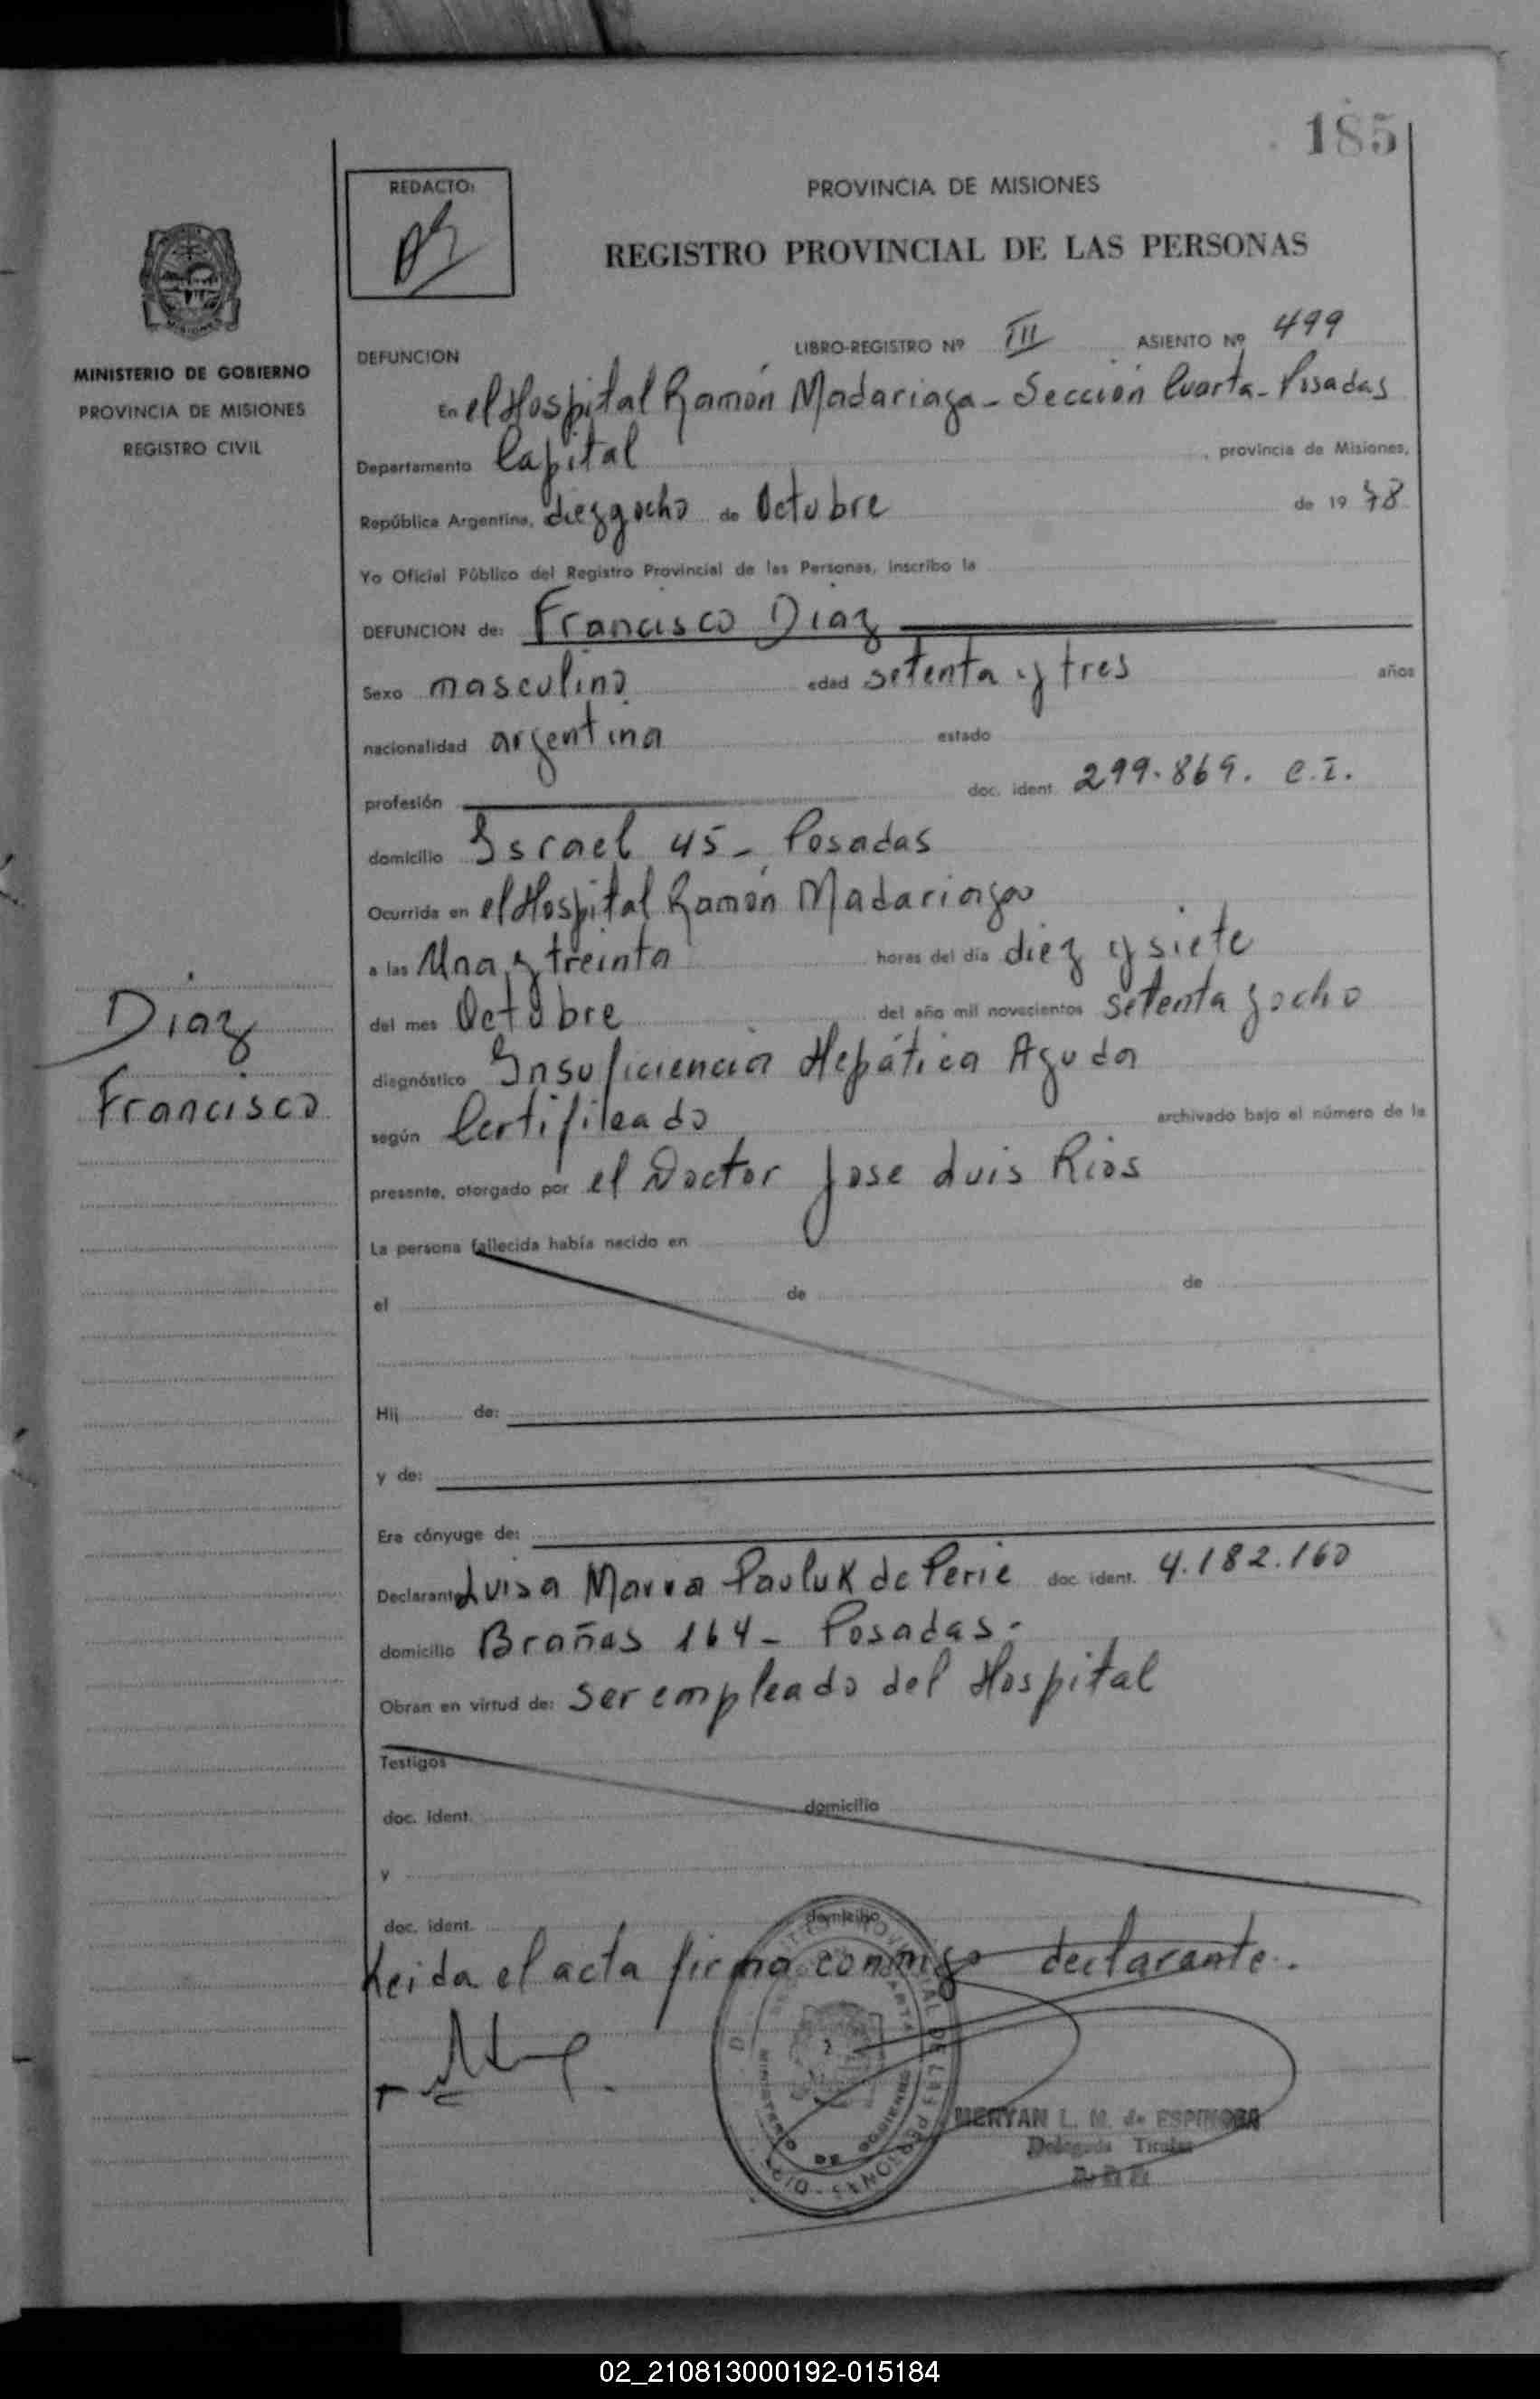 185
REDACTO:
PROVINCIA DE MISIONES
REGISTRO PROVINCIAL DE LAS PERSONAS
MISIONES
MINISTERIO DE GOBIERNO
PROVINCIA DE MISIONES
REGISTRO CIVIL
DEFUNCION LIBRO-REGISTRO Nº III ASIENTO Nº 499
En el Hospital Ramón Madariaga - Sección Cuarta - Posadas
Departamento Capital , provincia de Misiones,
República Argentina, diezyocho de Octubre de 19 78
Yo Oficial Público del Registro Provincial de las Personas, inscribo la
DEFUNCION de: Francisco Diaz
Sexo masculino edad setenta y tres años
nacionalidad argentina estado
profesión doc. ident. 299.869. C.I.
domicilio Israel 45 - Posadas
Ocurrida en el Hospital Ramón Madariaga
a las Una y treinta horas del día diez y siete
del mes Octubre del año mil novecientos setenta y ocho
diagnóstico Insuficiencia Hepática Aguda
según Certifileado archivado bajo el número de la
presente, otorgado por el Doctor Jose Luis Rios
La persona fallecida había nacido en
el de de
Hij de:
y de:
Era cónyuge de:
Declarante Luisa Maria Pauluk de Perie doc. ident. 4.182.160
domicilio Brañas 164 - Posadas -
Obran en virtud de: ser empleado del Hospital
Testigos
doc. ident. domicilio
y
doc. ident. domicilio
Leida el acta firma conmigo declarante.
Diaz
Francisco
MINISTERIO DE GOBIERNO
MERYAN L. M. de ESPINOSA
Delegada Titular
02_210813000192-015184